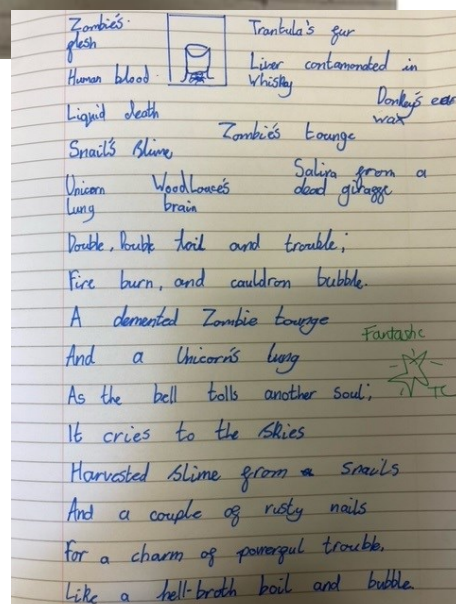 Zombie's flesh
Trantula's fur
Human blood.
Liver contamonated in whiskey
Donkey's ear wax
Liquid death
Zombie's tounge
Snail's Slime
Saliva from a dead giraffe
Unicorn lung
WoodLouce's brain
Double, Double toil and trouble;
Fire burn, and cauldron bubble.
A demented Zombie tounge
Fantastic
And a Unicorn's lung
TC
As the bell tolls another soul;
It cries to the skies
Harvested slime from snails
And a couple of rusty nails
For a charm of powerful trouble,
Like a hell-broth boil and bubble.